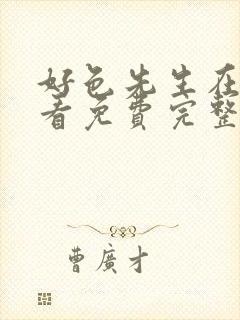 好色先生在
看免費完整
曹廣才